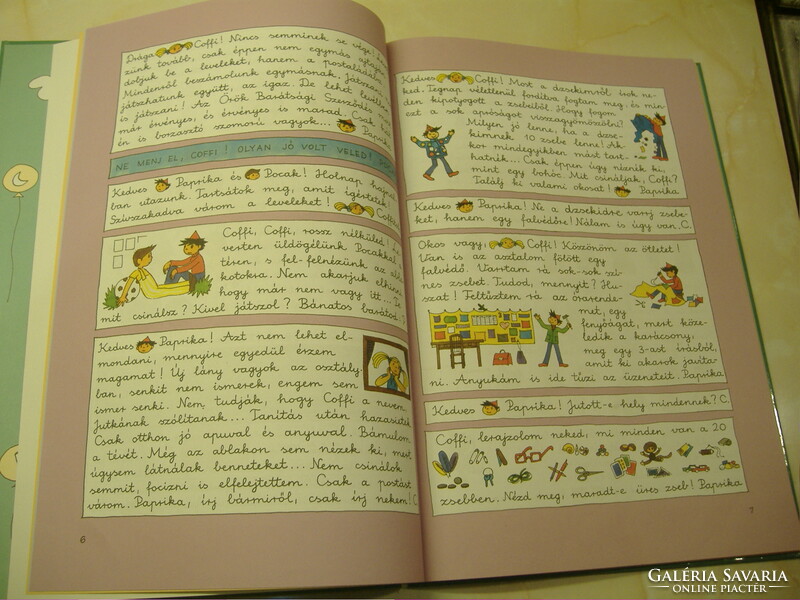 Drága Coffi! Nincs semminek se vége!
zünk tovább, csak éppen nem egymás ajtaján
dobjuk be a leveleket, hanem a postaládába.
Mindenről beszámolunk egymásnak. Játszani
játszhatunk együtt, az igaz. De lehet levélben
is játszani! Az Örök Barátsági Szerződés meg
már érvényes, és érvényes is marad. Csak hát
én is borzasztó szomorú vagyok... Paprika
NE MENJ EL, COFFI! OLYAN JÓ VOLT VELED!
Kedves Paprika és Pocak! Holnap hajnal-
ban utazunk. Tartsátok meg, amit ígértetek!
Szívszakadva várom a leveleket! Coffi
Coffi, Coffi, rossz nélküled!
verten üldögélünk Pocakkal
téren, s fel-felnézünk az abla-
kotokra. Nem akarjuk elhinni,
hogy már nem vagy itt...
mit csinálsz? Kivel játszol? Bánatos barátod:
Kedves Paprika! Azt nem lehet el-
mondani, mennyire egyedül érzem
magamat! Új lány vagyok az osztály-
ban, senkit nem ismerek, engem sem
ismer senki. Nem tudják, hogy Coffi a nevem,
Jutkának szólítanak... Tanítás után hazasietek.
Csak otthon jó apuval és anyuval. Bámulom
a tévét. Még az ablakon sem nézek ki, mert
úgysem látnálak benneteket... Nem csinálok
semmit, focizni is elfelejtettem. Csak a postást
várom. Paprika, írj bármiről, csak írj nekem! C.
6
Kedves Coffi! Most a dzsekimről írok ne-
ked. Tegnap véletlenül fordítva fogtam meg, és min-
den kipotyogott a zsebeiből. Hogy fogom
ezt a sok apróságot visszagyömöszölni?
Milyen jó lenne, ha a dzse-
kimnek 10 zsebe lenne! Ak-
kor mindegyikben mást tart-
hatnék... Csak éppen úgy néznék ki,
mint egy bohóc. Mit csináljak, Coffi?
Találj ki valami okosat! Paprika
Kedves Paprika! Ne a dzsekidre varrj zsebe-
ket, hanem egy falvédőre! Nálam is úgy van. C.
Okos vagy, Coffi! Köszönöm az ötletet!
Van is az asztalom fölött egy
falvédő. Varrtam rá sok-sok szí-
nes zsebet. Tudod, mennyit? Hu-
szat! Feltűztem rá az órarende-
met, egy
fenyőágat, mert köze-
ledik a karácsony,
meg egy 3-ast írásból,
amit ki akarok javíta-
ni. Anyukám is ide tűzi az üzeneteit. Paprika
Kedves Paprika! Jutott-e hely mindennek? C.
Coffi, lerajzolom neked, mi minden van a 20
zsebben. Nézd meg, maradt-e üres zseb! Paprika
7
GALÉRIA SAVARIA
ONLINE PIACTÉR